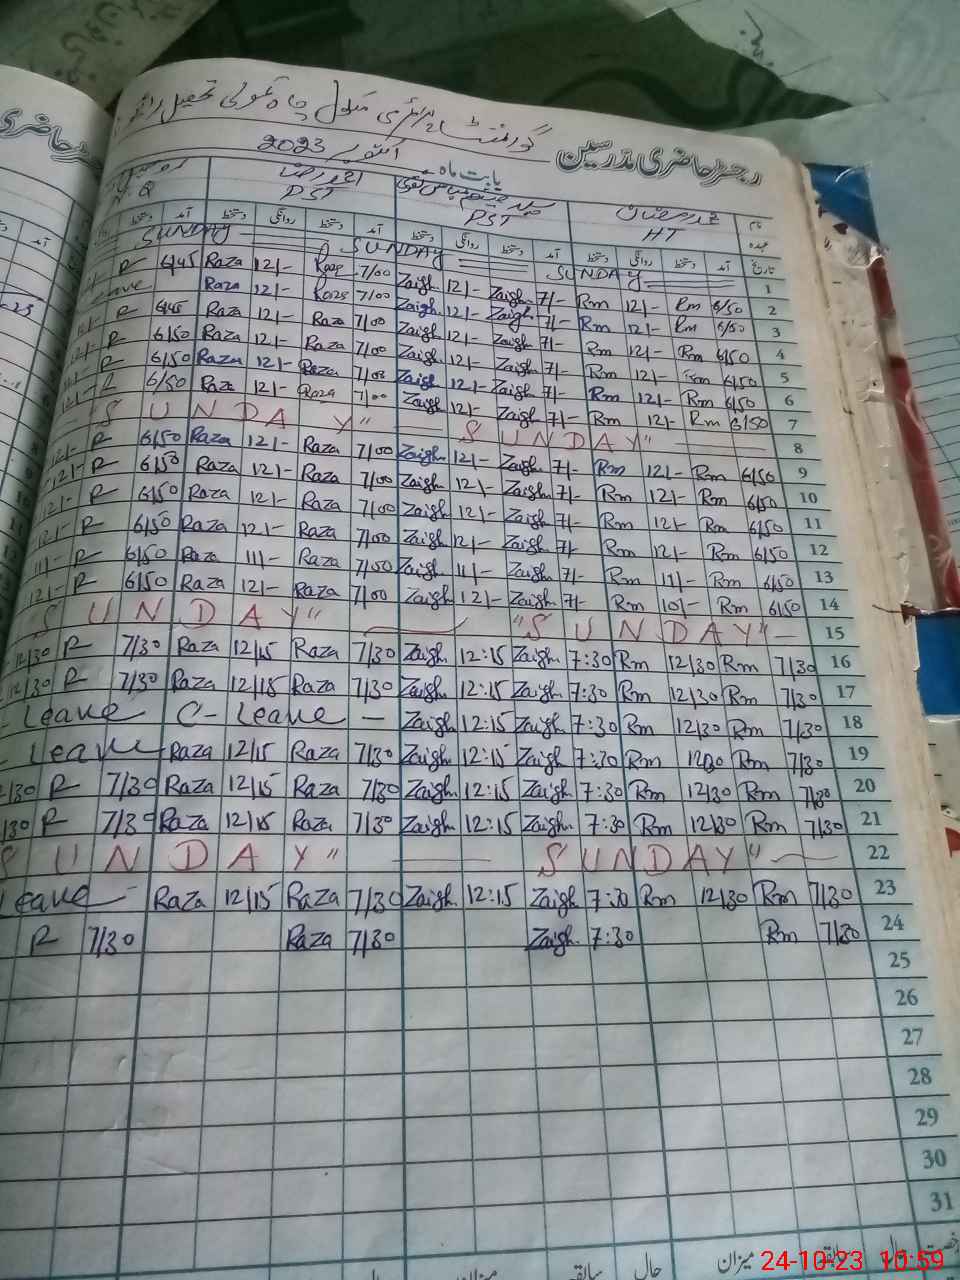 رجسٹر حاضری مدرسین گورنمنٹ پرائمری سکول چاہ
بابت ماہ اکتوبر 2023
نام محمد رمضان احمد رضا
عہدہ HT PST PST N.Q
تاریخ آمد دستخط روانگی دستخط آمد دستخط روانگی دستخط آمد دستخط روانگی دستخط آمد دستخط
1 SUNDAY SUNDAY SUNDAY
2 6/50 Rm 12/- Rm 7/- Zaigh. 12/- Zaigh. 7/00 Raza 12/- Raza 6/45 R
3 6/50 Rm 12/- Rm 7/- Zaigh. 12/- Zaigh. 7/00 Raza 12/- Raza Leave
4 6/50 Rm 12/- Rm 7/- Zaigh. 12/- Zaigh. 7/00 Raza 12/- Raza 6/45 R
5 6/50 Rm 12/- Rm 7/- Zaigh. 12/- Zaigh. 7/00 Raza 12/- Raza 6/50 R
6 6/50 Rm 12/- Rm 7/- Zaigh. 12/- Zaigh. 7/00 Raza 12/- Raza 6/50 R
7 6/50 Rm 12/- Rm 7/- Zaigh. 12/- Zaigh. 7/00 Raza 12/- Raza 6/50 R
8 "SUNDAY" SUNDAY"
9 6/50 Rm 12/- Rm 7/- Zaigh. 12/- Zaigh. 7/00 Raza 12/- Raza 6/50 R 12/-
10 6/50 Rm 12/- Rm 7/- Zaigh. 12/- Zaigh. 7/00 Raza 12/- Raza 6/50 R 12/-
11 6/50 Rm 12/- Rm 7/- Zaigh. 12/- Zaigh. 7/00 Raza 12/- Raza 6/50 R 12/-
12 6/50 Rm 12/- Rm 7/- Zaigh. 12/- Zaigh. 7/00 Raza 12/- Raza 6/50 R 12/-
13 6/50 Rm 11/- Rm 7/- Zaigh. 11/- Zaigh. 7/00 Raza 11/- Raza 6/50 R 11/-
14 6/50 Rm 10/- Rm 7/- Zaigh. 12/- Zaigh. 7/00 Raza 12/- Raza 6/50 R 12/-
15 SUNDAY" "SUNDAY"
16 7/30 Rm 12/30 Rm 7:30 Zaigh. 12:15 Zaigh. 7/30 Raza 12/15 Raza 7/30 R 12/30
17 7/30 Rm 12/30 Rm 7:30 Zaigh. 12:15 Zaigh. 7/30 Raza 12/15 Raza 7/30 R 12/30
18 7/30 Rm 12/30 Rm 7:30 Zaigh. 12:15 Zaigh. C-Leave Leave
19 7/30 Rm 12/30 Rm 7:30 Zaigh. 12:15 Zaigh. 7/30 Raza 12/15 Raza Leave
20 7/30 Rm 12/30 Rm 7:30 Zaigh. 12:15 Zaigh. 7/30 Raza 12/15 Raza 7/30 R 12/30
21 7/30 Rm 12/30 Rm 7:30 Zaigh. 12:15 Zaigh. 7/30 Raza 12/15 Raza 7/30 R
22 SUNDAY" SUNDAY"
23 7/30 Rm 12/30 Rm 7:30 Zaigh. 12:15 Zaigh. 7/30 Raza 12/15 Raza Leave
24 7/30 Rm 7:30 Zaigh. 7/30 Raza 7/30 R
25
26
27
28
29
30
31
رخصت حال سابقہ میزان حال سابقہ میزان حال
24-10-23 10:59